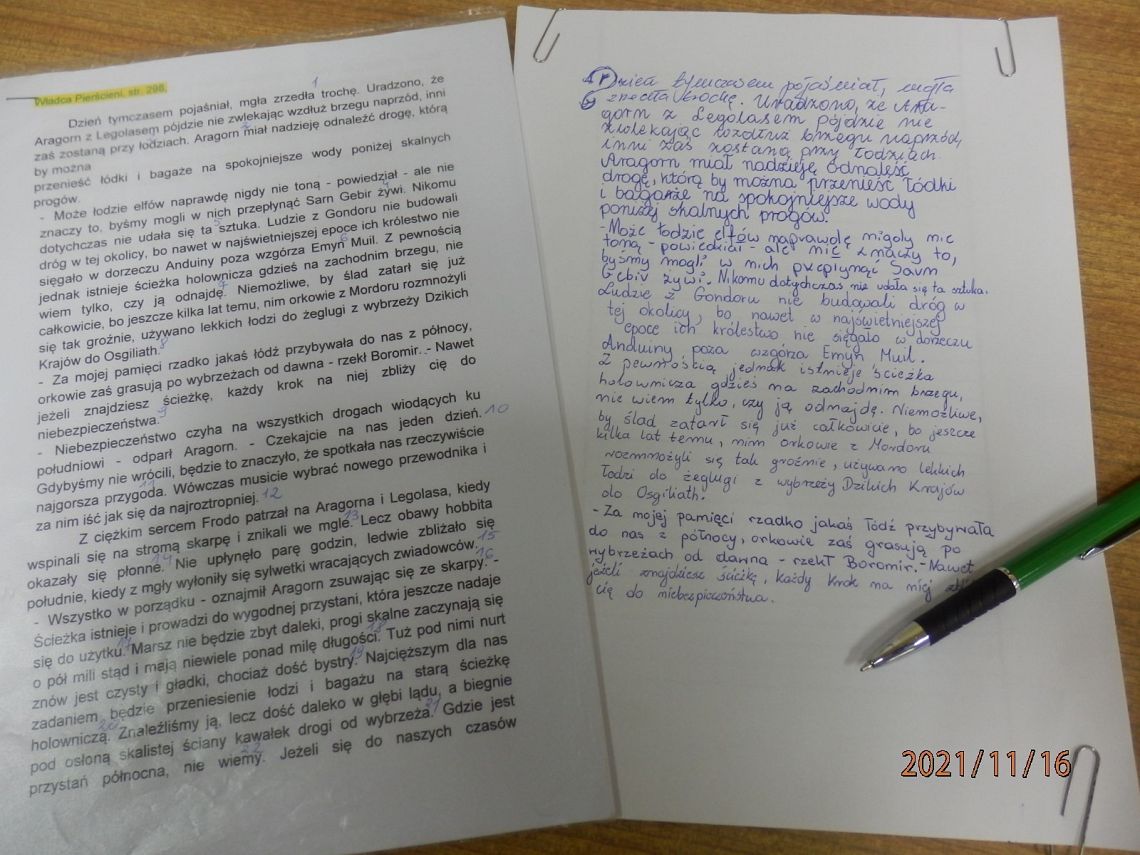 Władca Pierścieni, str. 298,
1
Dzień tymczasem pojaśniał, mgła zrzedła trochę. Uradzono, że
Aragorn z Legolasem pójdzie nie zwlekając wzdłuż brzegu naprzód, inni
2
zaś zostaną przy łodziach. Aragorn miał nadzieję odnaleźć drogę, którą
by można
przenieść łódki i bagaże na spokojniejsze wody poniżej skalnych
progów.
- Może łodzie elfów naprawdę nigdy nie toną - powiedział - ale nie
znaczy to, byśmy mogli w nich przepłynąć Sarn Gebir żywi. Nikomu
dotychczas nie udała się ta sztuka. Ludzie z Gondoru nie budowali
dróg w tej okolicy, bo nawet w najświetniejszej epoce ich królestwo nie
sięgało w dorzeczu Anduiny poza wzgórza Emyn Muil. Z pewnością
jednak istnieje ścieżka holownicza gdzieś na zachodnim brzegu, nie
wiem tylko, czy ją odnajdę. Niemożliwe, by ślad zatarł się już
całkowicie, bo jeszcze kilka lat temu, nim orkowie z Mordoru rozmnożyli
się tak groźnie, używano lekkich łodzi do żeglugi z wybrzeży Dzikich
Krajów do Osgiliath.
- Za mojej pamięci rzadko jakaś łódź przybywała do nas z północy,
orkowie zaś grasują po wybrzeżach od dawna - rzekł Boromir. - Nawet
jeżeli znajdziesz ścieżkę, każdy krok na niej zbliży cię do
niebezpieczeństwa. 9
- Niebezpieczeństwo czyha na wszystkich drogach wiodących ku
południowi - odparł Aragorn. - Czekajcie na nas jeden dzień. 10
Gdybyśmy nie wrócili, będzie to znaczyło, że spotkała nas rzeczywiście
najgorsza przygoda. Wówczas musicie wybrać nowego przewodnika i
za nim iść jak się da najroztropniej. 12
Z ciężkim sercem Frodo patrzał na Aragorna i Legolasa, kiedy
wspinali się na stromą skarpę i znikali we mgle. 13 Lecz obawy hobbita
okazały się płonne. 14 Nie upłynęło parę godzin, ledwie zbliżało się
południe, kiedy z mgły wyłoniły się sylwetki wracających zwiadowców. 15
- Wszystko w porządku - oznajmił Aragorn zsuwając się ze skarpy. 16 -
Ścieżka istnieje i prowadzi do wygodnej przystani, która jeszcze nadaje
się do użytku. 17 Marsz nie będzie zbyt daleki, progi skalne zaczynają się
o pół mili stąd i mają niewiele ponad milę długości. 18 Tuż pod nimi nurt
znów jest czysty i gładki, chociaż dość bystry. 19 Najcięższym dla nas
zadaniem będzie przeniesienie łodzi i bagażu na starą ścieżkę
holowniczą. 20 Znaleźliśmy ją, lecz dość daleko w głębi lądu, a biegnie
pod osłoną skalistej ściany kawałek drogi od wybrzeża. 21 Gdzie jest
przystań północna, nie wiemy. 22 Jeżeli się do naszych czasów
Dzień tymczasem pojaśniał, mgła
zrzedła trochę. Uradzono, że Ara-
gorn z Legolasem pójdzie nie
zwlekając wzdłuż brzegu naprzód,
inni zaś zostaną przy łodziach.
Aragorn miał nadzieję odnaleść
drogę, którą by można przenieść łódki
i bagaże na spokojniejsze wody
poniżej skalnych progów.
- Może łodzie elfów naprawdę nigdy nie
toną - powiedział - ale nie znaczy to,
byśmy mogli w nich przepłynąć Sarn
Gebir żywi. Nikomu dotychczas nie udała się ta sztuka.
Ludzie z Gondoru nie budowali dróg w
tej okolicy, bo nawet w najświetniejszej
epoce ich królestwo nie sięgało w dorzeczu
Anduiny poza wzgórza Emyn Muil.
Z pewnością jednak istnieje ścieżka
holownicza gdzieś na zachodnim brzegu,
nie wiem tylko, czy ją odnajdę. Niemożliwe,
by ślad zatarł się już całkowicie, bo jeszcze
kilka lat temu, nim orkowie z Mordoru
rozmnożyli się tak groźnie, używano lekkich
łodzi do żeglugi z wybrzeży Dzikich Krajów
do Osgiliath.
- Za mojej pamięci rzadko jakaś łódź przybywała
do nas z północy, orkowie zaś grasują po
wybrzeżach od dawna - rzekł Boromir. - Nawet
jeżeli znajdziesz ściżkę, każdy krok na niej
cię do niebezpieczeństwa.
2021/11/16